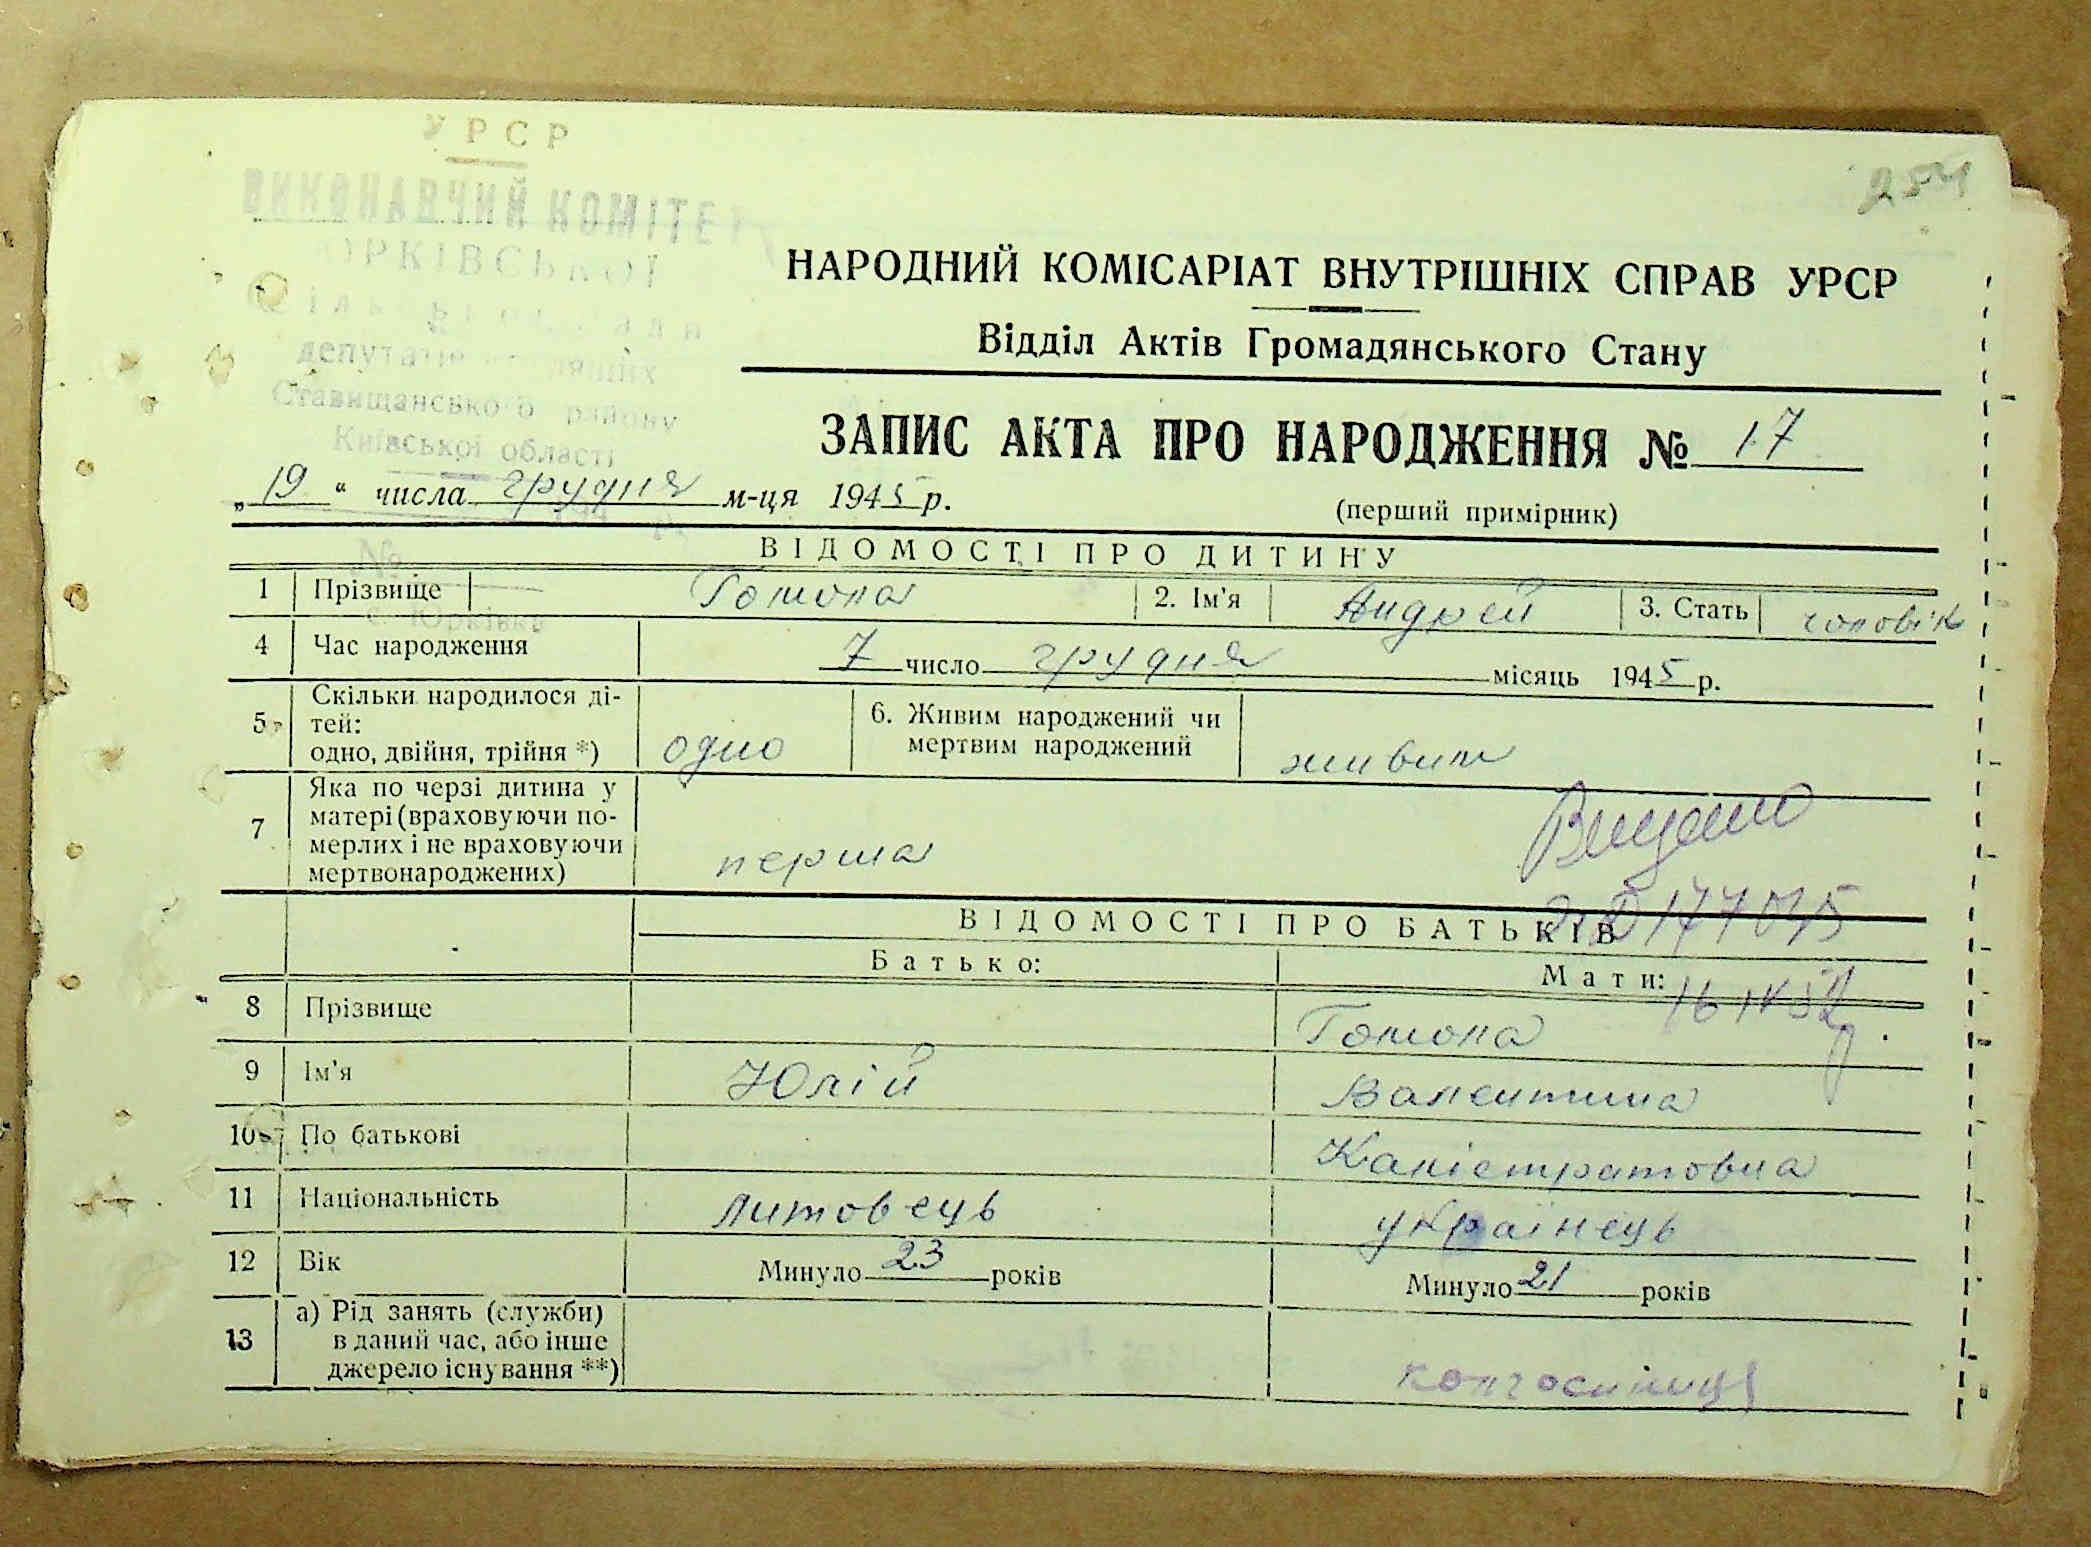 УРСР
ВИКОНАВЧИЙ КОМІТЕТ
ЮРКІВСЬКОЇ
депутатів
Ставищанського району
Київської області
№
с. Юрківка
254
НАРОДНИЙ КОМІСАРІАТ ВНУТРІШНІХ СПРАВ УРСР
Відділ Актів Громадянського Стану
ЗАПИС АКТА ПРО НАРОДЖЕННЯ № 17
„19“ числа грудня м-ця 1945 р.
(перший примірник)
ВІДОМОСТІ ПРО ДИТИНУ
1 Прізвище Гомона 2. Ім'я Андрей 3. Стать чоловік
4 Час народження 7 число грудня місяць 1945 р.
5 Скільки народилося ді-
тей:
одно, двійня, трійня *) одно
6. Живим народжений чи
мертвим народжений живим
7 Яка по черзі дитина у
матері (враховуючи по-
мерлих і не враховуючи
мертвонароджених) перша
Видано
ВІДОМОСТІ ПРО БАТЬКІВ
Батько: Мати:
8 Прізвище Гомона
9 Ім'я Юлій Валентина
10 По батькові Калістратовна
11 Національність литовець українець
12 Вік Минуло 23 років Минуло 21 років
13 а) Рід занять (служби)
в даний час, або інше
джерело існування **) колгоспниця